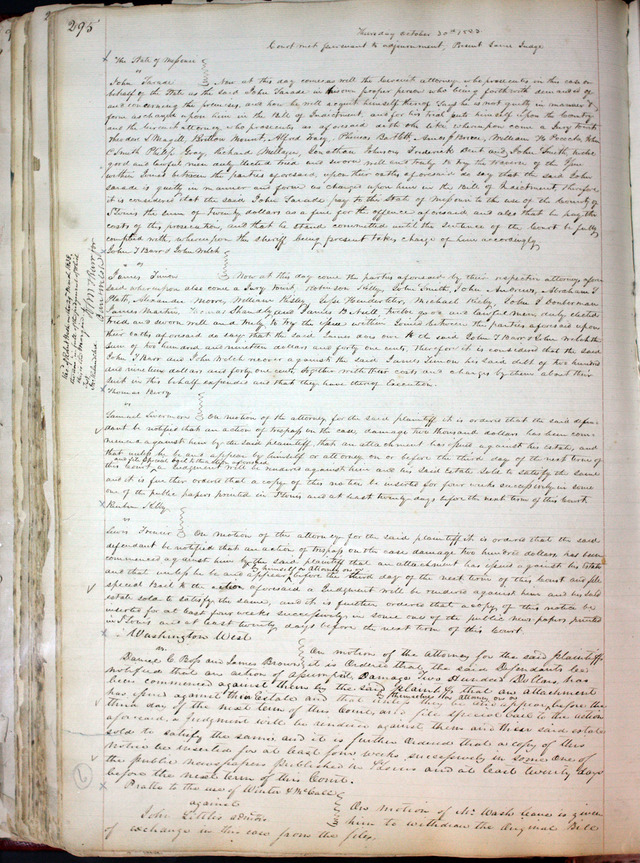 295
Thursday October 30th 1823
Court met pursuant to adjournment, Present Same Judge
The State of Missouri
vs
John Sarade } Now at this day comes as well the circuit attorney who prosecutes in this case on
behalf of the State as the said John Sarade in his own proper person who being forthwith demanded of
and concerning the premises, and how he will acquit himself thereof says he is not guilty in manner &
form as charged upon him in the Bill of Indictment, and for his trial puts himself upon the Country
and the circuit attorney who prosecutes as aforesaid doth the like whereupon come a Jury to wit
Alfred Tracy, Phineas Bartlett, James J Purdon, William H John
Smith Philip Gray, Richard Milligan, Jonathan Johnson Frederick Dent and John Smith, twelve
good and lawful men duly elected tried and sworn well and truly to try the traverse of the Issue
within Joined between the parties aforesaid, upon their oaths aforesaid do say that the said John
Sarade is guilty in manner and form as charged upon him in the Bill of Indictment, therefore
it is considered that the said John Sarade pay to the State of Missouri to the use of the County of
St Louis the sum of Twenty dollars as a fine for the offence aforesaid and also that he pay the
costs of this prosecution, and that he stand committed until the Sentence of the Court be fully
complied with, whereupon the sheriff being present takes charge of him accordingly
John T Barr & John Welch
vs
James Timon } Now at this day come the parties aforesaid by their respective attorneys afore
said whereupon also come a Jury to wit, Robinson Kelly, John Smith, John Andrews, Abraham S
Platt, Alexander Moore, William Kelly, Jesse Michael Kirby, John J
James Machin, Thomas Shandly and James B. Neill, twelve good and lawful men, duly elected
tried and sworn well and truly to try the Issue within Joined between the parties aforesaid upon
their oaths aforesaid do say that the said James doth owe the said John T Barr & John Welch the
sum of two hundred and nineteen dollars and forty one cents, therefore it is considered that the said
John T Barr and John Welch recover against the said James Timon his said debt of two hundred
and nineteen dollars and forty one cents together with their costs and charges by them about their
suit in this behalf expended and that they have thereof execution.
Thomas Berry
vs
Samuel } On motion of the attorney for the said plaintiff it is ordered that the said defen-
dant be notified that an action of trespass on the case, damage two thousand dollars has been com
menced against him by the said plaintiff, that an attachment has issued against his estate, and
that unless he be and appear by himself or attorney on or before the third day of the next term of
and file special bail to the action aforesaid
this Court, a Judgment will be rendered against him and his said Estate Sold to satisfy the same
and it is further ordered that a copy of this notice be inserted for four weeks successively in some
one of the public papers printed in St Louis and at least twenty days before the next term of this Court.
Reuben Kelly
vs
Lewis } On motion of the attorney for the said plaintiff it is ordered that the said
defendant be notified that an action of trespass on the case damage two hundred dollars has been
commenced against him by the said plaintiff that an attachment has issued against his estate
by himself or attorney on or
and that unless he be and appear before the third day of the next term of this Court and file
special bail to the action aforesaid a Judgment will be rendered against him and his said
estate sold to satisfy the same, and it is further ordered that a copy of this notice be
inserted for at least four weeks successively in some one of the public news papers printed
in St Louis and at least twenty days before the next term of this Court.
Washington West
vs
Daniel C Boss and James Brown } On motion of the attorney for the said plaintiff
it is Ordered that the said Defendants be
notified that an action of assumpsit, Damage Two Hundred Dollars, has
been commenced against them by the said plaintiff that an attachment
by themselves or attorney on or
has issued against their Estate and that unless they be and appear, before the
third day of the next term of this Court, and file special bail to the action
aforesaid, a judgment will be rendered against them and their said estate
sold to satisfy the same and it is further Ordered that a copy of this
notice be inserted for at least four weeks successively in some one of
the public newspapers published in St Louis and at least twenty days
before the next term of this Court.
Pratte to the use of Winter & McCall
against
John Little's admors } On motion of Mr Wash leave is given
him to withdraw the original Bill
of exchange in this case from the files.